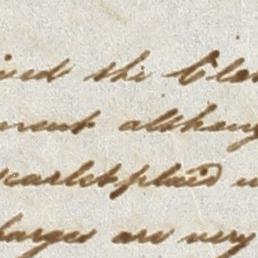 ived the Clo
ment althoug
scarlet plaid w
harges are very